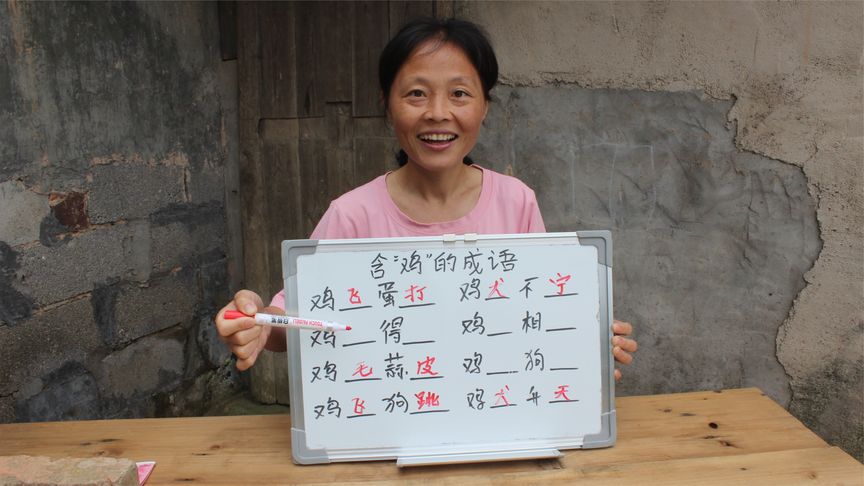 含"鸡"的成语
鸡飞蛋打 鸡犬不宁
鸡__得__ 鸡__相__
鸡毛蒜皮 鸡__狗__
鸡飞狗跳 鸡犬升天